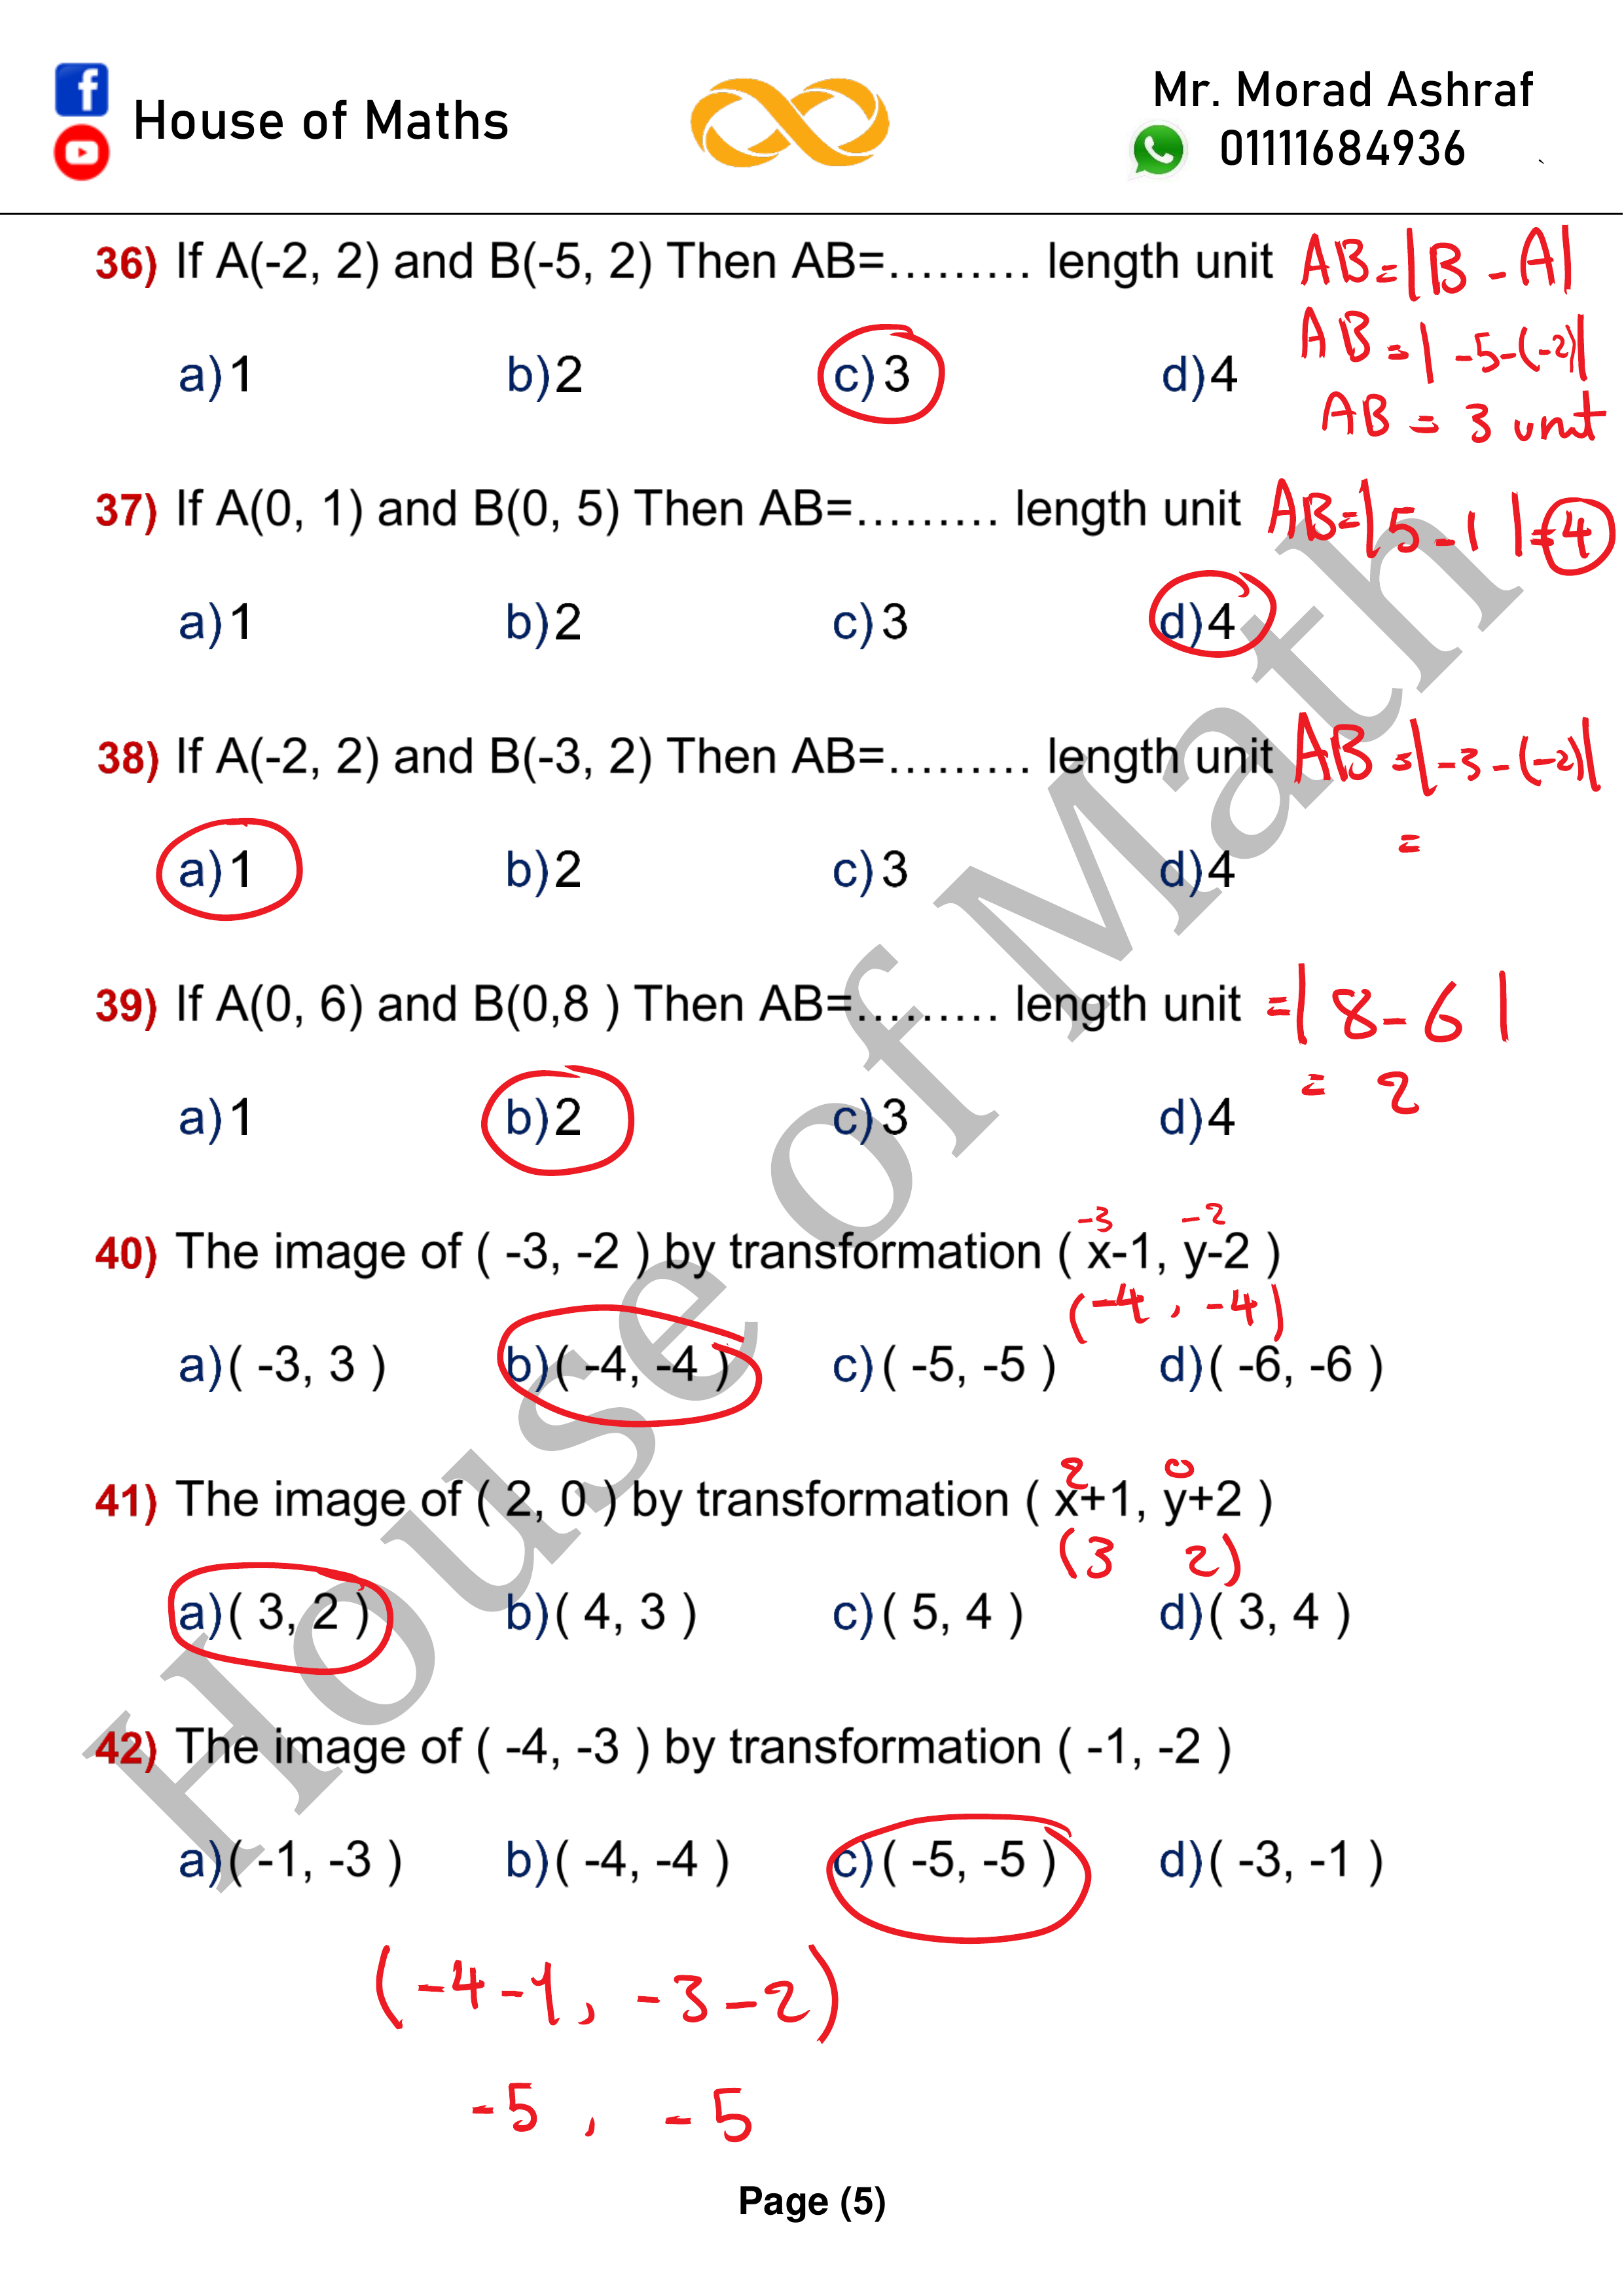 House of Maths
Mr. Morad Ashraf
01111684936
36) If A(-2, 2) and B(-5, 2) Then AB=......... length unit
AB=|B - A|
AB=| -5-(-2)|
AB = 3 unit
a)1 b)2 c)3 d)4
37) If A(0, 1) and B(0, 5) Then AB=......... length unit
AB=|5-1|=4
a)1 b)2 c)3 d)4
38) If A(-2, 2) and B(-3, 2) Then AB=......... length unit
AB=|-3-(-2)|
=
a)1 b)2 c)3 d)4
39) If A(0, 6) and B(0,8 ) Then AB=......... length unit
=| 8-6 |
= 2
a)1 b)2 c)3 d)4
-3 -2
40) The image of ( -3, -2 ) by transformation ( x-1, y-2 )
(-4 , -4)
a)( -3, 3 ) b)( -4, -4 ) c)( -5, -5 ) d)( -6, -6 )
2 0
41) The image of ( 2, 0 ) by transformation ( x+1, y+2 )
(3 2)
a)( 3, 2 ) b)( 4, 3 ) c)( 5, 4 ) d)( 3, 4 )
42) The image of ( -4, -3 ) by transformation ( -1, -2 )
a)( -1, -3 ) b)( -4, -4 ) c)( -5, -5 ) d)( -3, -1 )
(-4-1, -3-2)
-5 , -5
Page (5)
House of Math